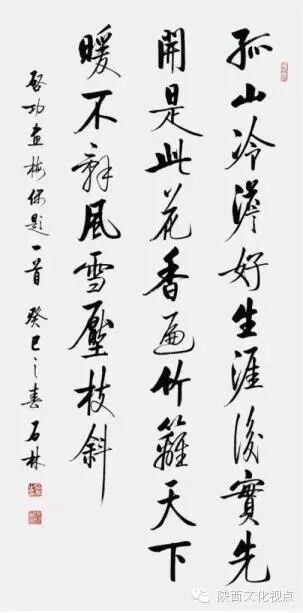 孤山冷澹好生涯後實先
開是此花香遍竹籬天下
暖不辭風雪壓枝斜
啓功畫梅偶題一首 癸巳之春 石林
陕西文化视点